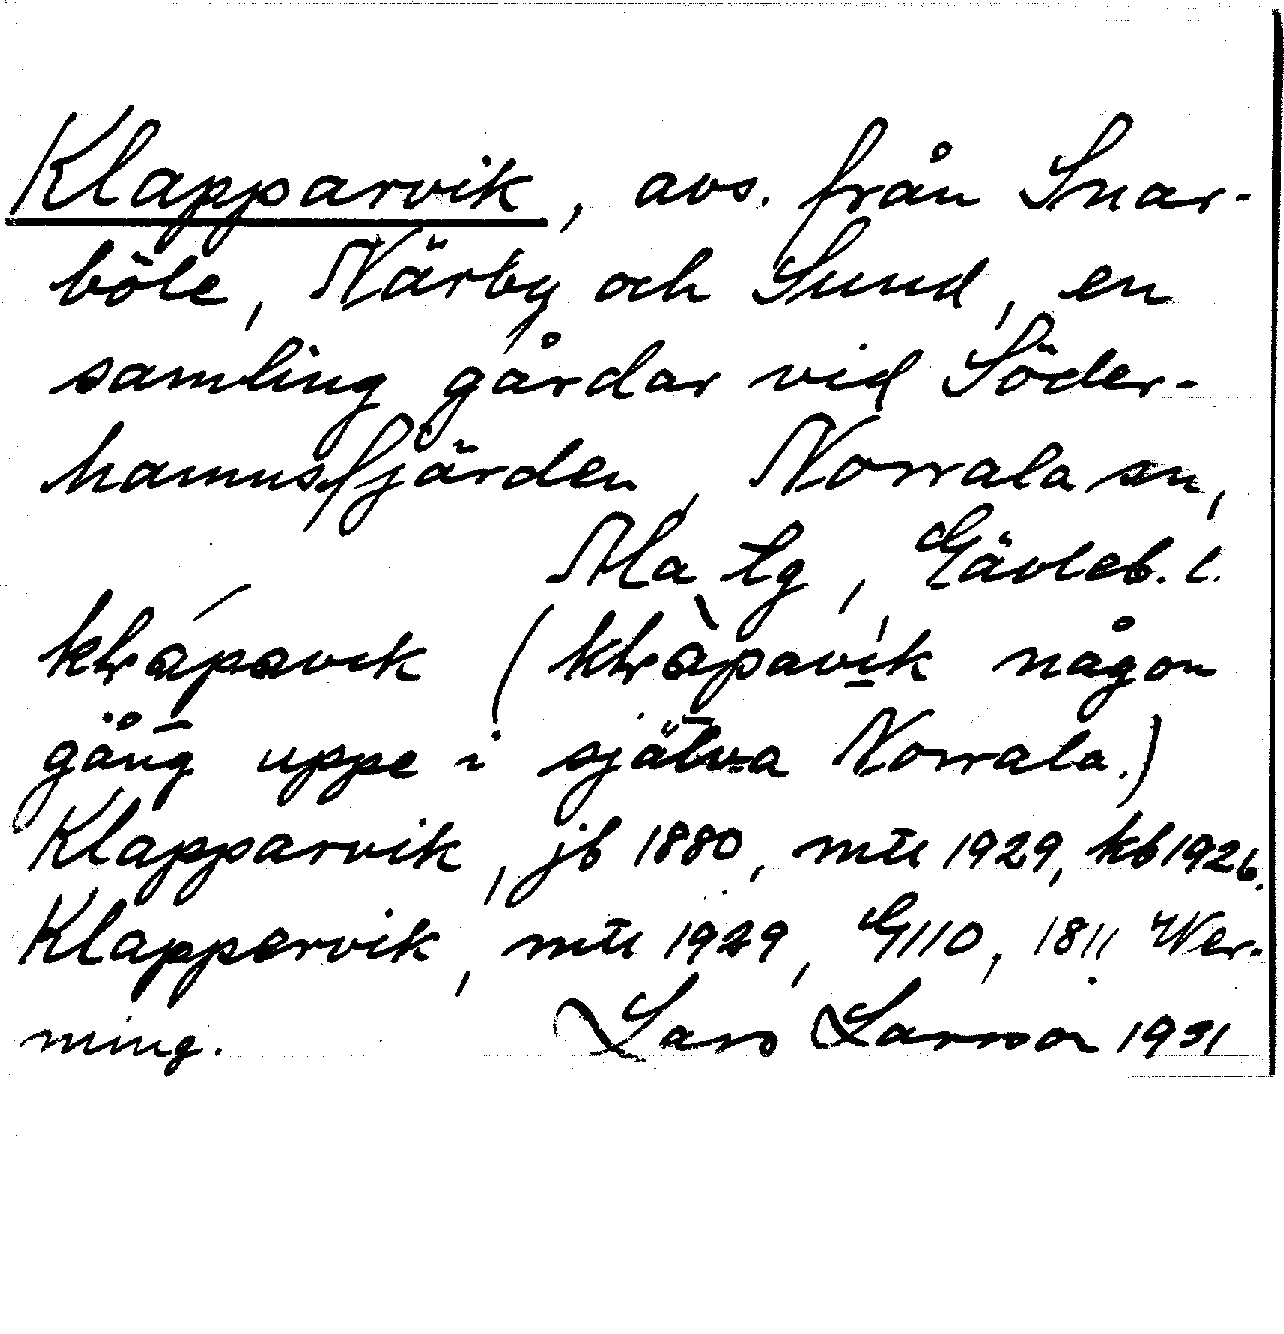 Klapparvik, avs. från Snar-
böle, Närby och Sund, en
samling gårdar vid Söder-
hamnsfjärden, Norrala sn,
Ala tg, Gävleb. l.
någon
gång uppe i själva Norrala.)
Klapparvik, jb 1880, mtl 1929, kb 1926.
Klappervik, mtl 1929, G110, 1811 Wer-
ming. Lars Larsson 1931